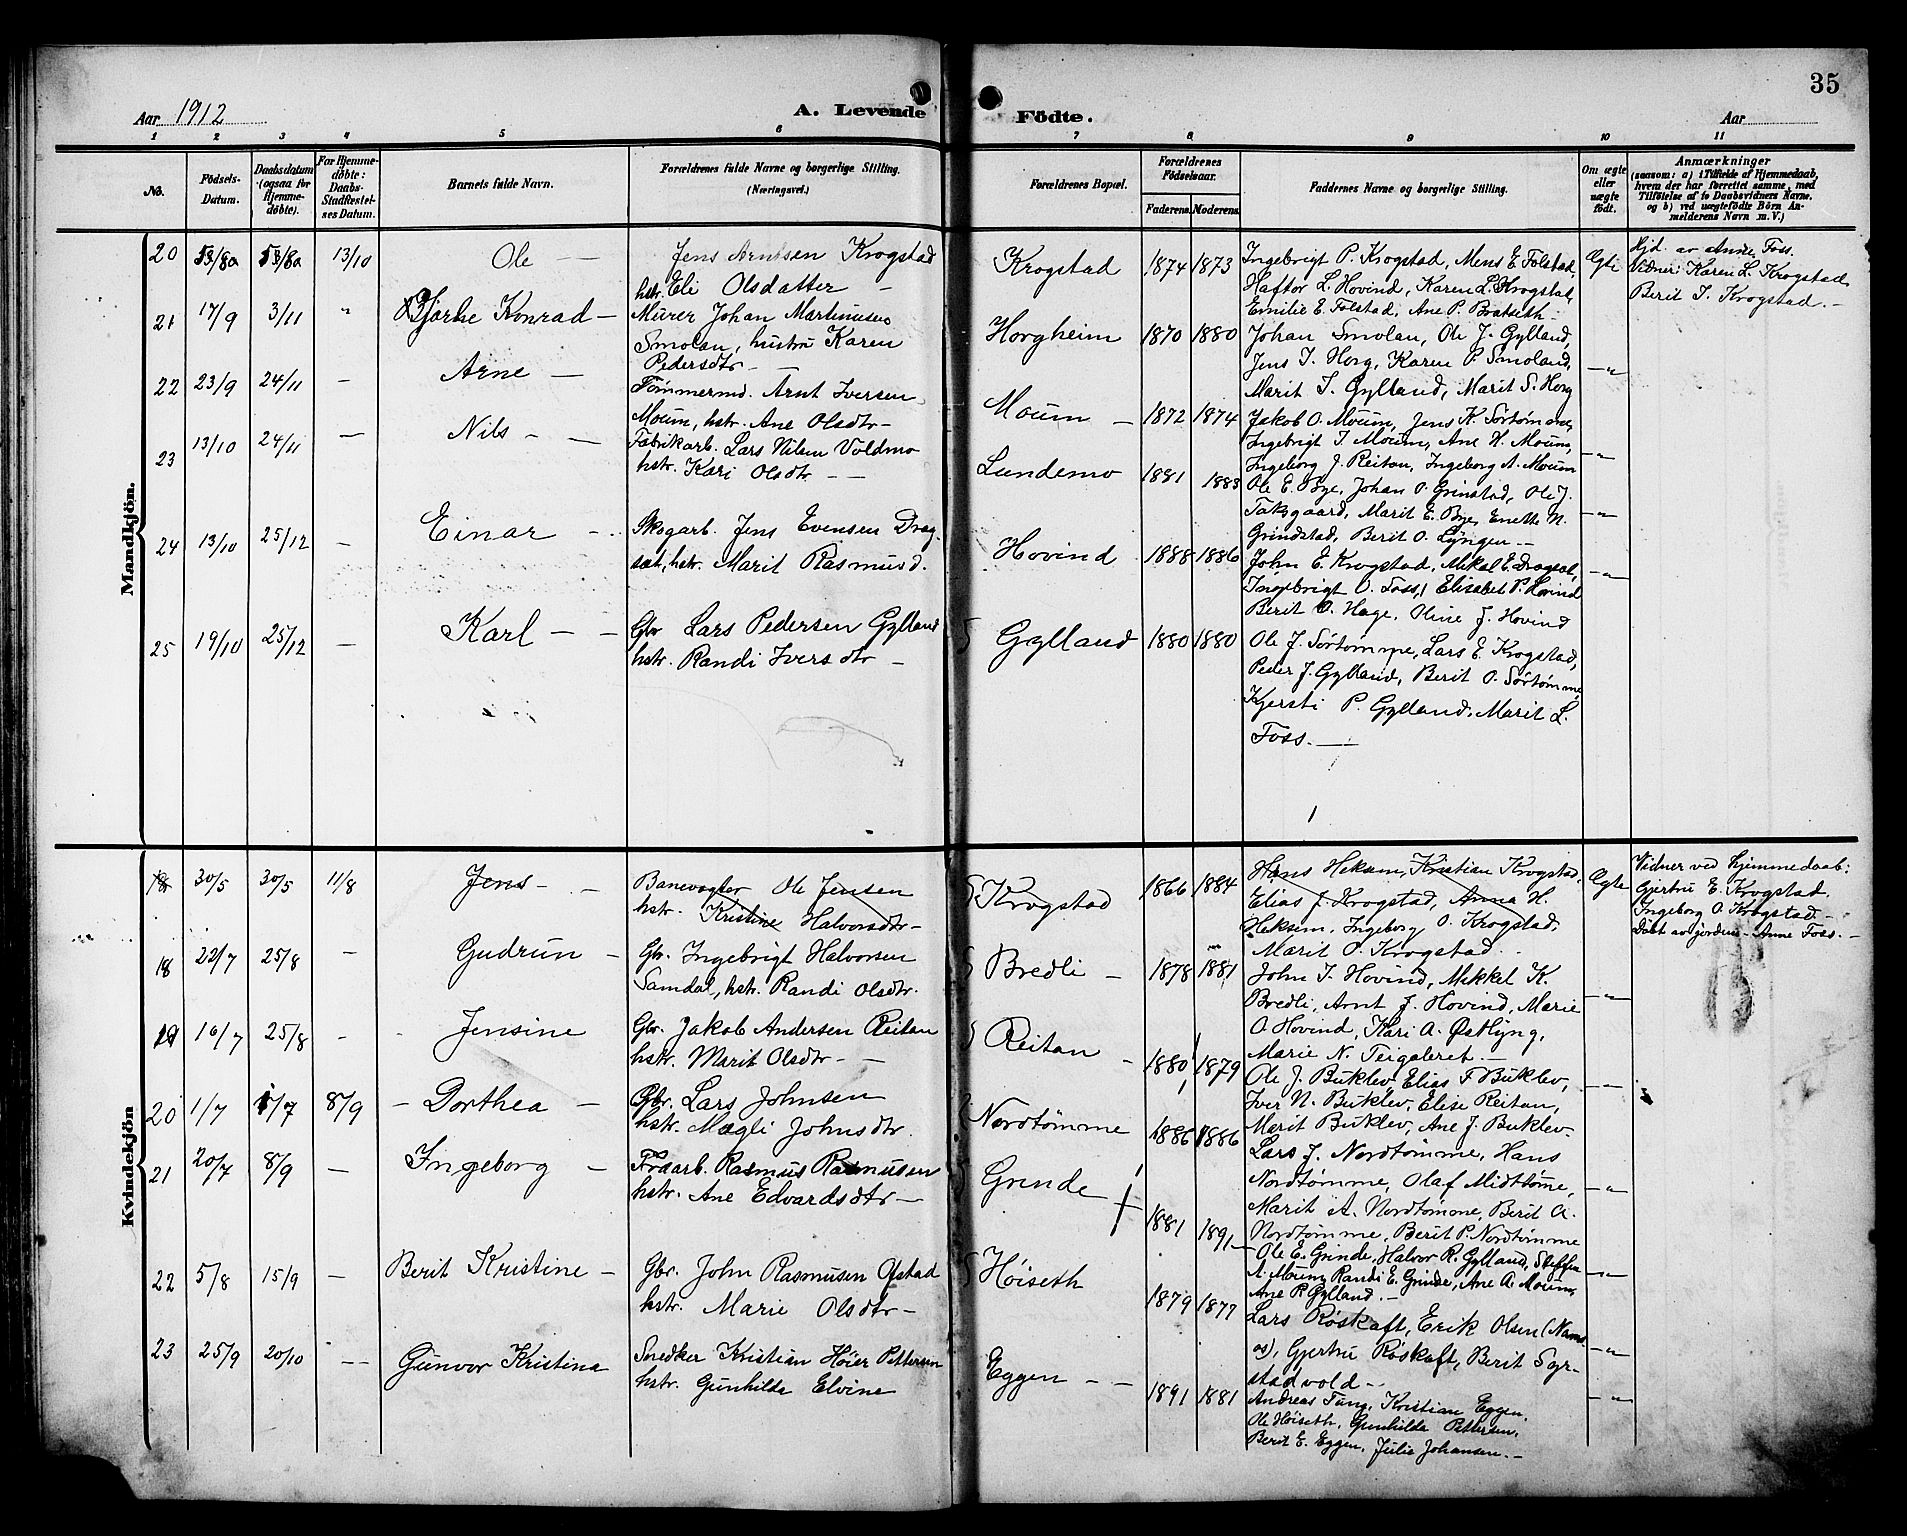 35
Aar 1912
A. Levende
Födte.
Aar
1 2 3 4 5 6 7 8 9 10 11
No.
Födsels-Datum.
Daabsdatum (ogsaa for Hjemme-döbte).
For Hjemme-döbte: Daabs-Stadfæstel-ses Datum.
Barnets fulde Navn.
Forældrenes fulde Navne og borgerlige Stilling.
(Næringsvei.)
Forældrenes Bopæl.
Forældrenes Födselsaar.
Faderens. Moderens.
Faddernes Navne og borgerlige Stilling.
Om ægte eller uægte födt.
Anmærkninger
(saasom: a) i Tilfælde af Hjemmedaab,
hvem der har forrettet samme, med
Tilföielse af to Daabsvidners Navne,
og b) ved uægtefödte Börn An-
melderens Navn m. V.)
Mandkjön.
20 13/10 Ole —
Jens Arntsen Krogstad
hstr. Eli Olsdatter —
Krogstad 1874 1873
Ingebrigt P. Krogstad, Mens E. Folstad,
Haftor L. Hovind, Karen L. Krogstad,
Emilie E. Folstad, Ane P. Bratseth —
Ægte
Hjd. av Anne Foss.
Vidner: Karen L. Krogstad,
Berit I. Krogstad. —
21 17/9 3/11 " Bjarke Konrad —
Murer Johan Martinusen
Smolan, hustru Karen
Pedersdtr —
Horgheim 1870 1880
Johan Smolan, Ole J. Gylland,
Jens I. Horg, Karen P. Smoland,
Marit I. Gylland, Marit S. Horg
—"—
22 23/9 24/11 — Arne —
Tømmermd. Arnt Iversen
Moum, hstr. Ane Olsdtr —
Moum — 1872 1874
Jakob O. Moum, Jens K. Sørtømme,
Ingebrigt I. Moum, Ane H. Moum,
Ingeborg J. Reitan, Ingeborg A. Moum
—"—
23 13/10 24/11 — Nils —
Fabrikarb. Lars Nilsen Voldmo
hstr. Kari Olsdtr — —
Lundemo 1881 1883
Ole E. Bye, Johan O. Grinstad, Ole J.
Taksgaard, Marit E. Bye, Enette N.
Grindstad, Berit O. Lyngen —
—"—
24 13/10 25/12 — Einar —
Skogarb. Jens Evensen Drag-
sæt, hstr. Marit Rasmusd.
Hovind 1888 1886
John E. Krogstad, Mikal E. Dragsæt,
Ingebrigt O. Foss, Elisabet P. Hovind
Berit O. Hage, Oline J. Hovind
—"—
25 19/10 25/12 — Karl — —
Gbr Lars Pedersen Gylland
hstr. Randi Iversdtr —
Gylland 1880 1880
Ole J. Sørtømme, Lars E. Krogstad,
Peder J. Gylland, Berit O. Sørtømme,
Kjersti P. Gylland, Marit L.
Foss. —
Kvindekjön
30/5 30/5 11/8 Jens — —
Banevogter Ole Jensen
hstr. Kristine Halvorsdtr —
Krogstad 1866 1884
Hans Heksem, Kristian Krogstad,
Elias J. Krogstad, Anna H.
Heksem, Ingeborg O. Krogstad,
Marit O. Krogstad.
Ægte
Vidner ved hjemmedaab:
Gjertru E. Krogstad
Ingeborg O. Krogstad —
Døbt av jordem. Anne Foss. —
18 22/7 25/8 — Gudrun —
Gbr. Ingebrigt Halvorsen
Samdal, hstr. Randi Olsdtr.
Bredli — 1878 1881
John I. Hovind, Mikkel K.
Bredli, Arnt J. Hovind, Marie
O. Hovind, Kari A. Østlyng,
Marie N. Teigaleret. —
—"—
19 16/7 25/8 — Jensine
Gbr. Jakob Andersen Reitan
hstr. Marit Olsdtr — —
Reitan — 1880 1879
Ole J. Buklev, Elias F. Buklev,
Iver N. Buklev, Elise Reitan,
Marit Buklev, Ane J. Buklev —
—"—
20 1/7 1/7 8/9 — Dorthea —
Gbr. Lars Johnsen
hstr. Magli Johnsdtr.
Nordtømme 1886 1886
Lars J. Nordtømme, Hans
Nordtømme, Olaf Midttømme,
Marit A. Nordtømme, Berit A.
Nordtømme, Berit P. Nordtømme
—"—
21 20/7 8/9 — Ingeborg —
Rasmus Rasmusen
hstr. Ane Edvardsdtr —
Grinde 1881 1891 —
Ole E. Grinde, Halvor R. Gylland, Steffen
A. Moum, Randi E. Grinde, Ane A. Moum,
Ane P. Gylland. —
—"—
22 5/8 15/9 — Berit Kristine —
Gbr. John Rasmusen Ofstad
hstr. Marie Olsdtr —
Høiseth 1879 1877
Lars Røskaft, Erik Olsen (Nams-
os), Gjertru Røskaft, Berit Syr-
stadvold —
—"—
23 25/9 20/10 — — Gunvor Kristina
Snedker Kristian Høier Pettersen
hstr. Gunhilda Elvine
Eggen — — 1891 1881
Andreas Tung, Kristian Eggen,
Ole Høiseth, Gunhilda Pettersen,
Berit E. Eggen, Julie Johansen. —
—"—